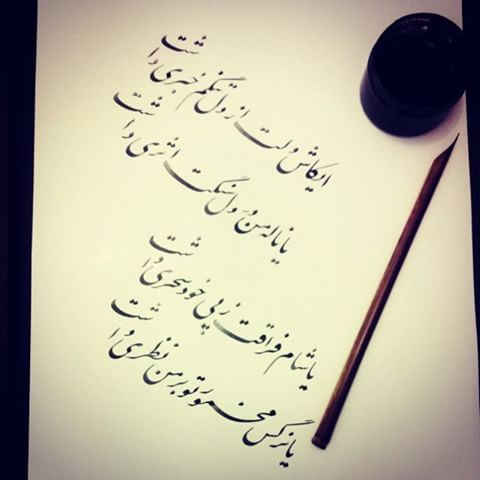 ایکاش دلت از دل تنگم خبری داشت
یا ناله من در دل سنگت اثری داشت
یا شام فراقت ز پی خود سحری داشت
یا نرگس مخمور تو بر من نظری داشت